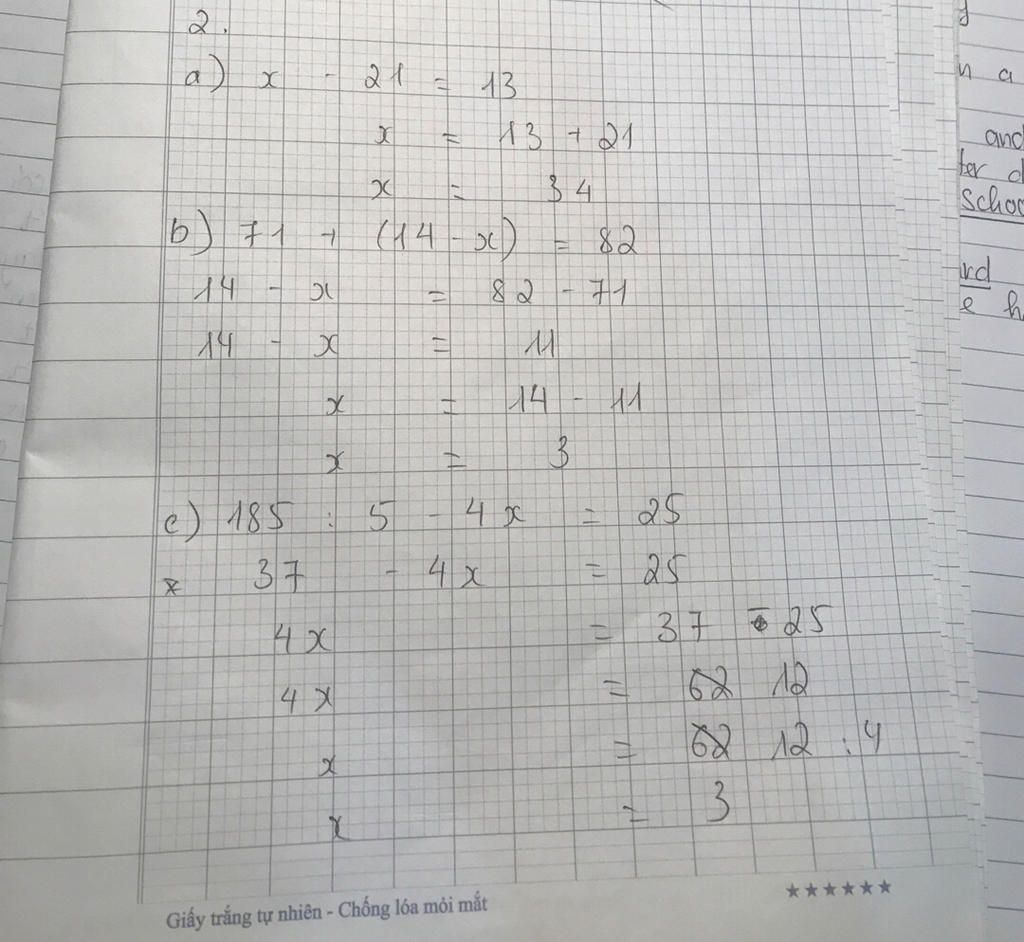 2.
a) x - 21 = 13
x = 13 + 21
x = 34
b) 71 + (14 - x) = 82
14 - x = 82 - 71
14 - x = 11
x = 14 - 11
x = 3
c) 185 : 5 - 4x = 25
37 - 4x = 25
4x = 37 - 25
4x = 62 12
x = 62 12 : 4
x = 3
Giấy trắng tự nhiên - Chống lóa mỏi mắt
★★★★★★
n a
and
ter d
schoo
rd
e h